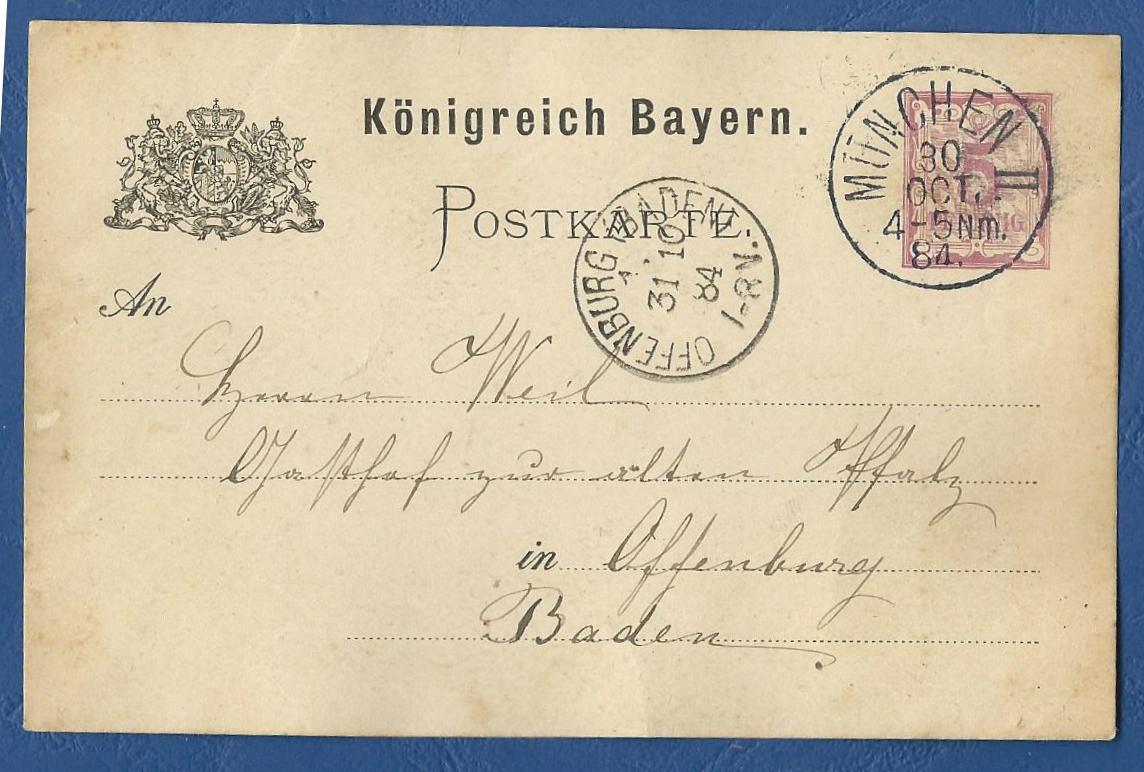 Königreich Bayern.
POSTKARTE.
MÜNCHEN II
30
OCT.
4-5 Nm.
84.
5
OFFENBURG (BADEN)
31 10
84
1-8 N.
An
Herrn Weil
Gasthof zur alten Pfalz
in Offenburg
Baden